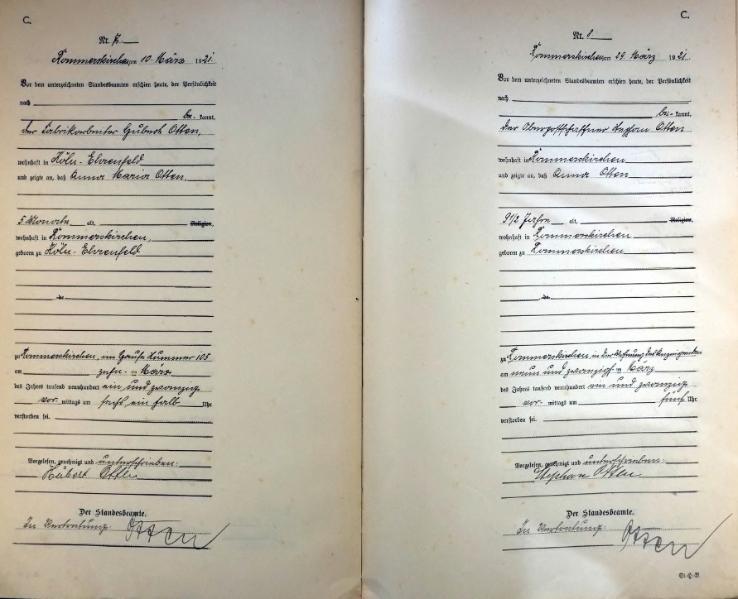 C.
Nr. 7
Rommerskirchen am 10 März 1921.
Vor dem unterzeichneten Standesbeamten erschien heute, der Persönlichkeit
nach
be= kannt,
der Fabrikarbeiter Hubert Otten,
wohnhaft in Köln-Ehrenfeld
und zeigte an, daß Anna Maria Otten
5 Monate alt, Religion,
wohnhaft in Rommerskirchen,
geboren zu Köln-Ehrenfeld
der
zu Rommerskirchen, im Hause Nummer 105
am zehn ten März
des Jahres tausend neunhundert ein und zwanzig
vor mittags um ein halb Uhr
verstorben sei.
Vorgelesen, genehmigt und unterschrieben.
Hubert Otten
Der Standesbeamte.
In Vertretung: Otten
C.
Nr. 8
Rommerskirchen am 29 März 1921.
Vor dem unterzeichneten Standesbeamten erschien heute, der Persönlichkeit
nach
be= kannt,
der Oberpostschaffner Stephan Otten
wohnhaft in Rommerskirchen
und zeigte an, daß Anna Otten
9 1/2 Jahre alt, Religion,
wohnhaft in Rommerskirchen
geboren zu Rommerskirchen
der
zu Rommerskirchen in der Wohnung des Anzeigenden
am neun und zwanzigsten März
des Jahres tausend neunhundert ein und zwanzig
vor mittags um fünf Uhr
verstorben sei.
Vorgelesen, genehmigt und unterschrieben.
Stephan Otten
Der Standesbeamte.
In Vertretung: Otten